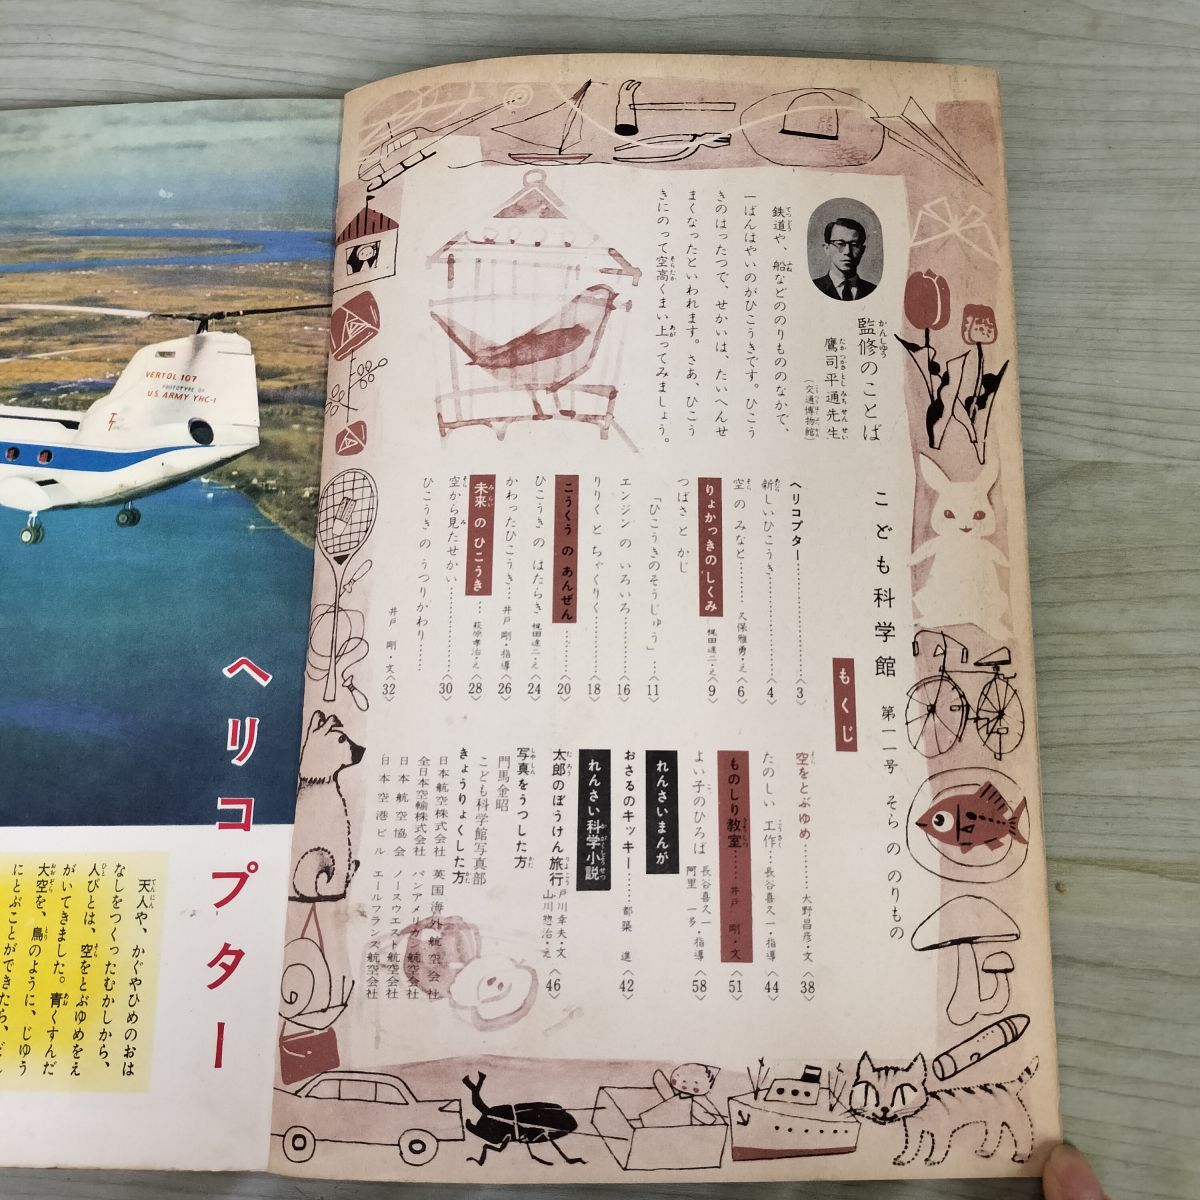 監修のことば
鷹司平通先生
(交通博物館)
鉄道や、船などののりもののなかで、
一ばんはやいのがひこうきです。ひこう
きのはったつで、せかいは、たいへんせ
まくなったといわれます。さあ、ひこう
きにのって空高くまい上ってみましょう。
こども科学館 第一一号 そらののりもの
もくじ
ヘリコプター……〈3〉
新しいひこうき……〈4〉
空のみなと……久保雅勇・え〈6〉
りょかっきのしくみ……梶田達二・え〈9〉
つばさとかじ
「ひこうきのそうじゅう」…〈11〉
エンジンのいろいろ……〈16〉
りりくとちゃくりく……〈18〉
こうくうのあんぜん……〈20〉
ひこうきのはたらき 梶田達二・え〈24〉
かわったひこうき…井戸剛・指導〈26〉
未来のひこうき…萩原孝治・え〈28〉
空から見たせかい……〈30〉
ひこうきのうつりかわり……井戸剛・文〈32〉
空をとぶゆめ……大野昌彦・文〈38〉
たのしい工作…長谷喜久一・指導〈44〉
ものしり教室……井戸剛・文〈51〉
よい子のひろば 長谷喜久一 阿里一多・指導〈58〉
れんさいまんが
おさるのキッキー……都築進〈42〉
れんさい科学小説
太郎のぼうけん旅行 戸川幸夫・文 山川惣治・え〈46〉
写真をうつした方
門馬金昭
こども科学館写真部
きょうりょくした方
日本航空株式会社 英国海外航空会社
全日本空輸株式会社 パンアメリカン航空会社
日本航空協会 ノースウエスト航空会社
日本空港ビル エールフランス航空会社
VERTOL 107
PROTOTYPE OF
U.S. ARMY YHC-1
ヘリコプター
天人や、かぐやひめのおは
なしをつくったむかしから、
人びとは、空をとぶゆめをえ
がいてきました。青くすんだ
大空を、鳥のように、じゆう
にとぶことができたら、